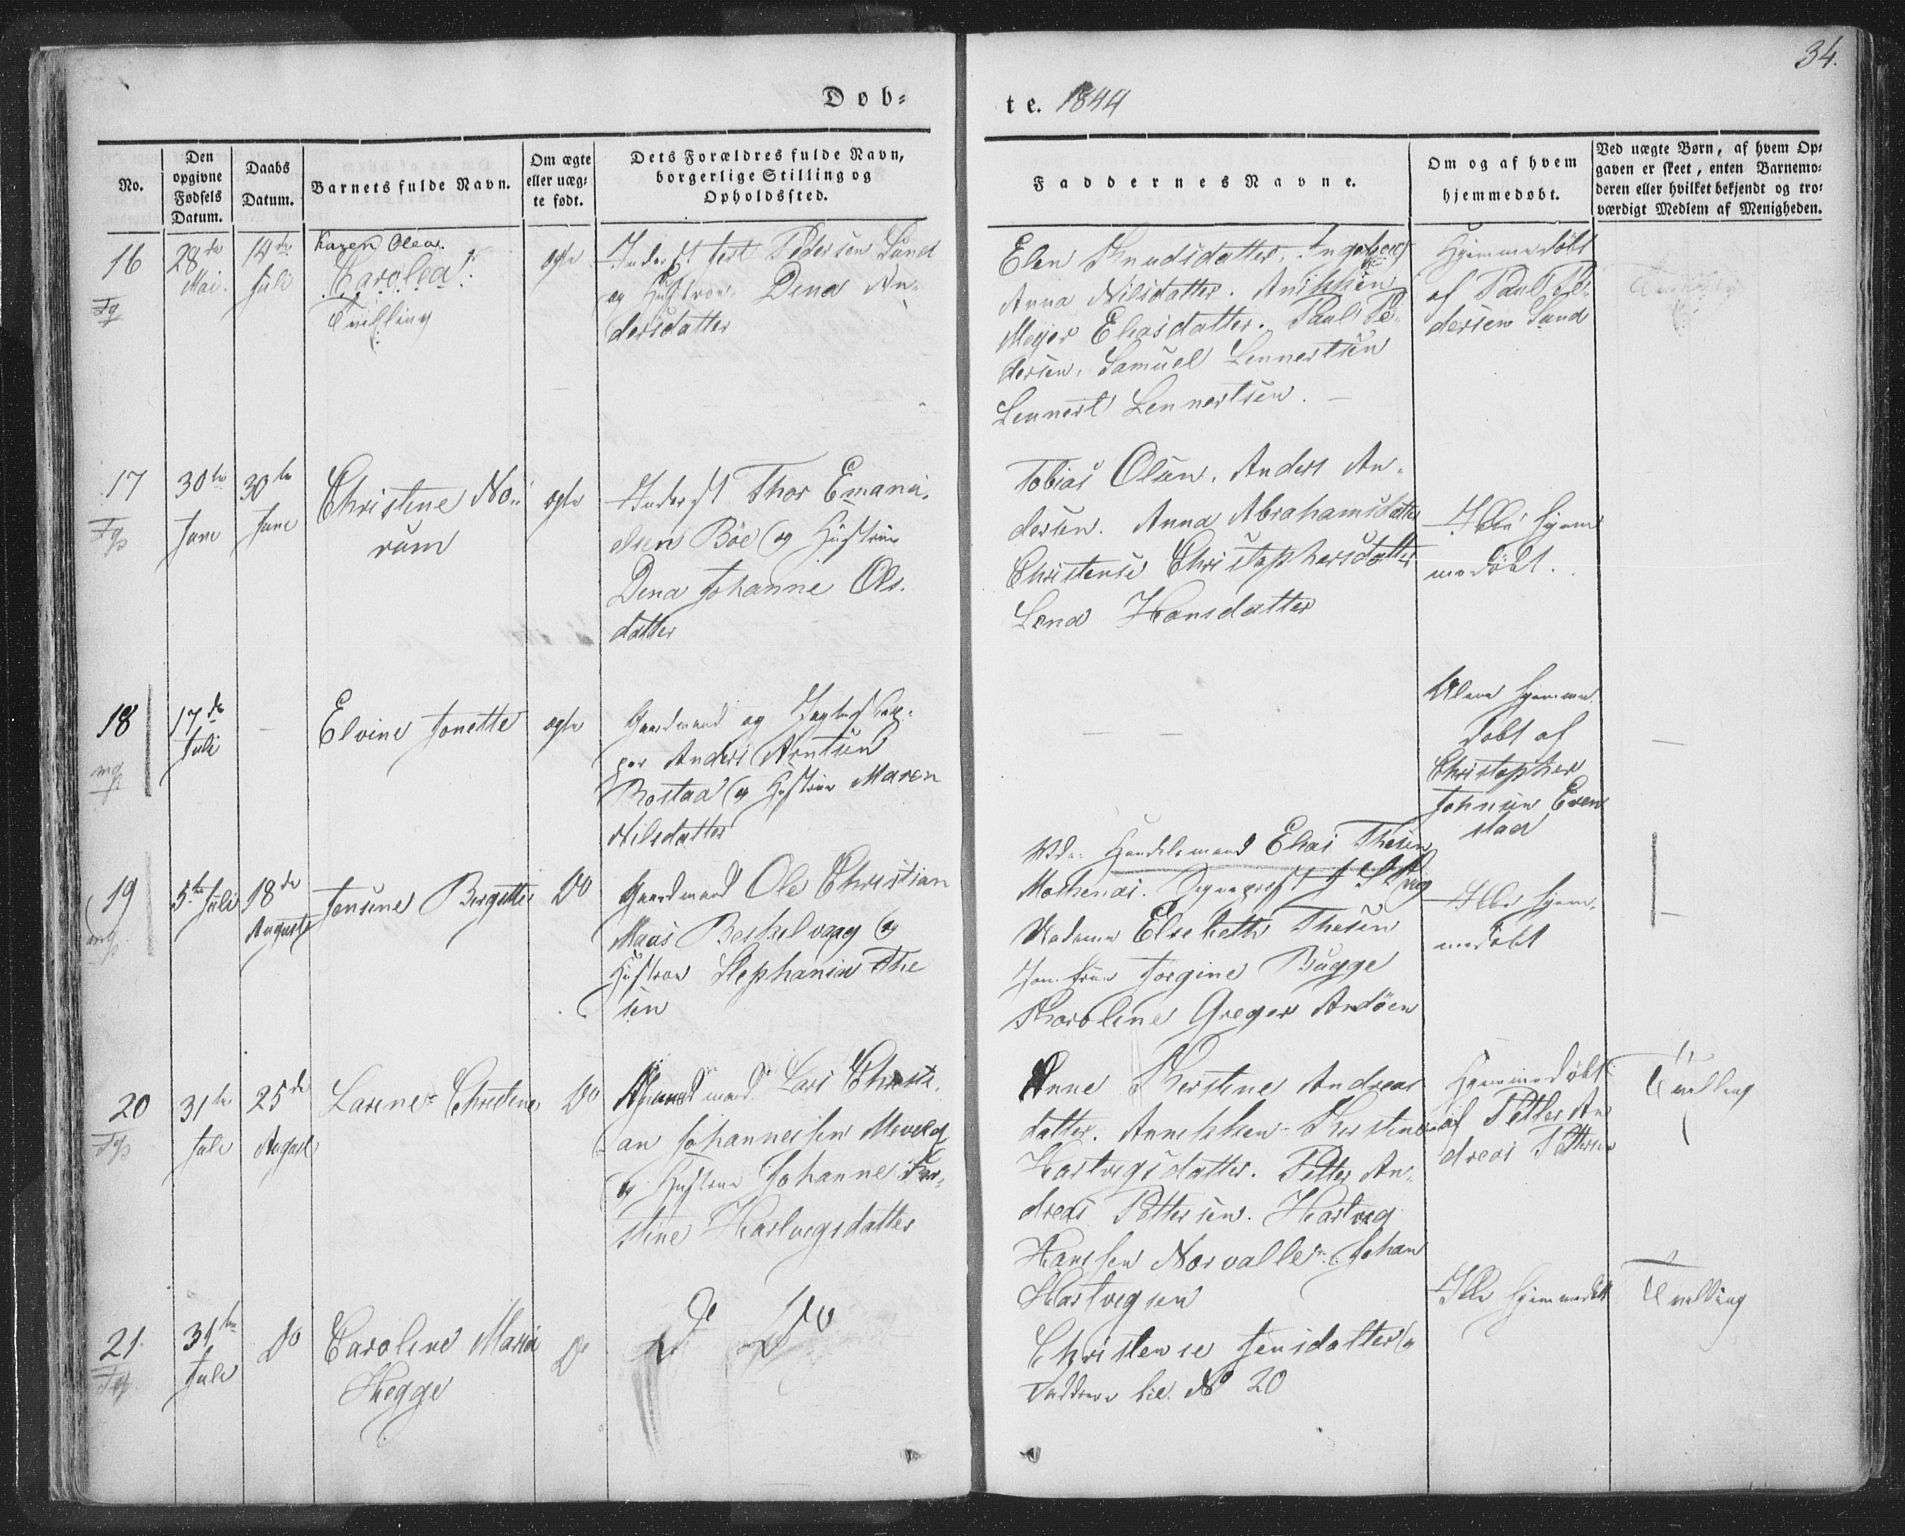 34.
Døb-
te. 1844
No.
Den
opgivne
Fødsels
Datum.
Daabs
Datum.
Barnets fulde Navn.
Om ægte
eller uæg-
te født.
Dets Forældres fulde Navn,
borgerlige Stilling og
Opholdssted.
Faddernes Navne.
Om og af hvem
hjemmedøbt.
Ved uægte Børn, af hvem Op-
gaven er skeet, enten Barnemo-
deren eller hvilket bekjendt og tro-
værdigt Medlem af Menigheden.
16
28de
Mai.
14de
Juli
Karen Olea.
Karolea
Tvilling
ægte
Inderst Pedersen Sund
og Hustroe, Dena An-
dersdatter
Elen Knudsdatter. Ingeborg
Anna Nilsdatter. Anikken
Meyer Eliasdatter. Paul Pe-
dersen. Samuel Lennertsen
Lennert Lennertsen. —
Hjemmedøbt
af Paul Pe-
dersen Sund
17
30te
June
30te
June
Christine No-
rum
ægte
Inderst Thor Emana-
elsen Böe og Hustrue
Dena Johanne Ols-
datter
Tobias Olsen. Anders An-
dersen. Anna Abrahamsdatter
Christense Christophersdatter
Lena Hansdatter
Ikke hjem-
medøbt.
18
17de
Juli
—
Elvine Jonette
ægte
Gaardmand og
Anders Arntsen
Bostad og Hustrue Maren
Nilsdatter
— —
Alene hjemme-
døbt af
Christopher
Johnsen Even
stad
—
19
5te Juli
18de
August
Jensine Birgitte
Do
Gaardmand Ole Christian
Maas Beskelvaag og
Hustroe Stephanie The
sen
Handelsmand Elias Thesen
Madame Elsebeth Thesen
Jomfrue Jorgine Bugge
Karoline Greger Andöen
Ikke hjem-
medøbt
—
20
31te
Juli
25de
August
Larine Christine
Do
Lars Christi-
an Johannessen Mevelq
og Hustrue Johanne Ker-
stine Hartvigsdatter
Anne Kerstine Andreas
datter. Annekken Kerstine
Hartvigsdatter. Petter An-
dreas Pettersen. Hartvig
Hanssen Norvalle. Johan
Hartvigsen
Hjemmedøbt
af Petter An-
dreas Pettersen
Tvilling
21.
31te
Juli
Do
Caroline Maria
Hegge
Do
Do Do
Christense Jensdatter og
Faddrene til No 20
Ikke hjemmedøbt
Tvilling